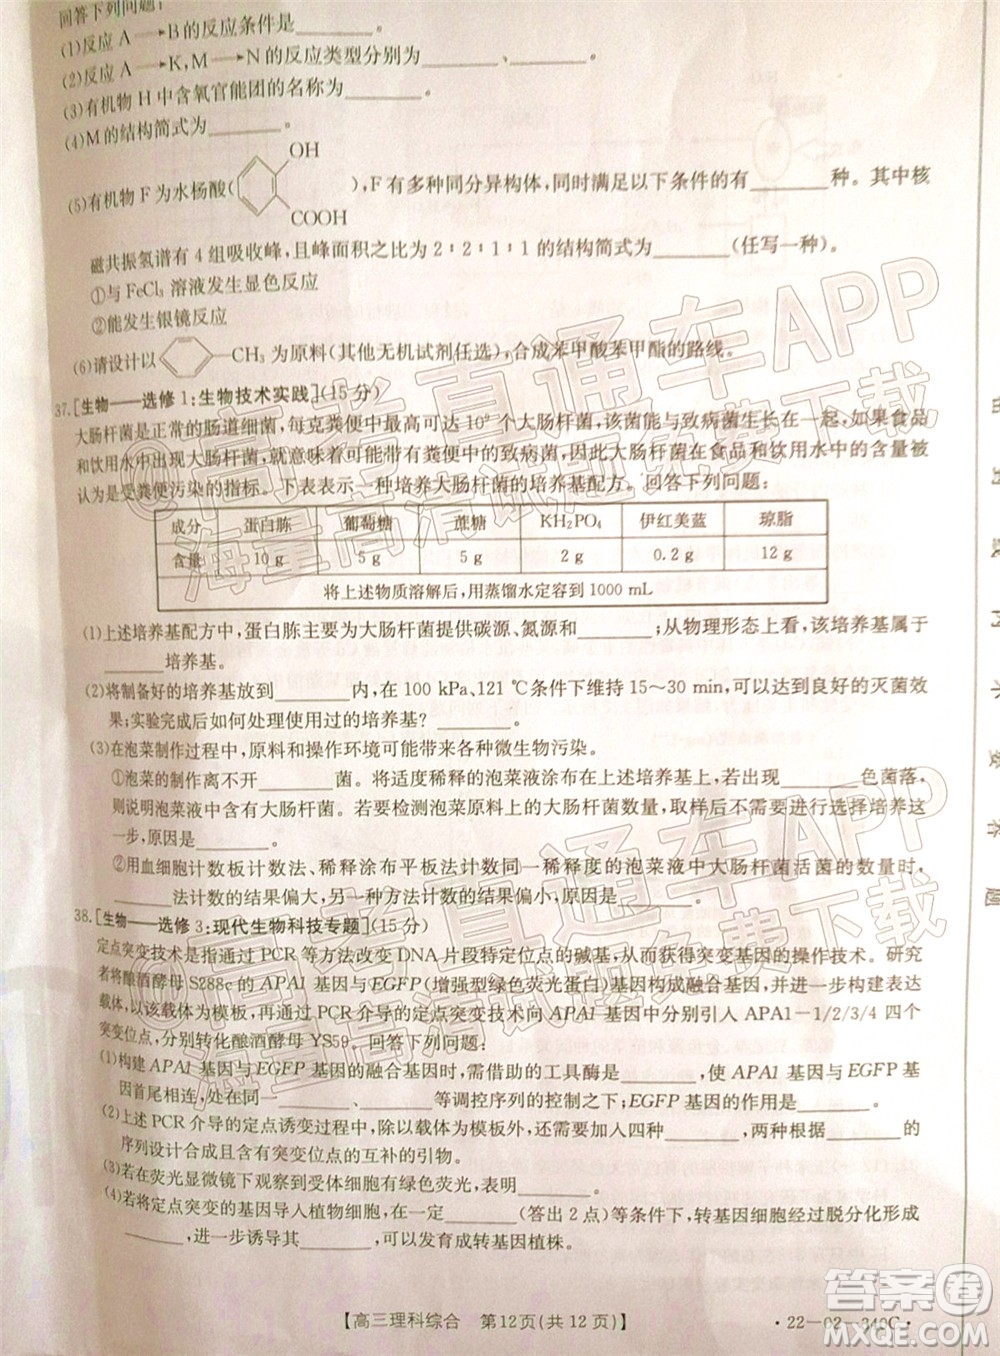 回答下列问题:
(1)反应 A→B的反应条件是________。
(2)反应 A→K,M→N的反应类型分别为________、________。
(3)有机物 H 中含氧官能团的名称为________。
(4)M的结构简式为________。
OH
(5)有机物 F 为水杨酸( ),F有多种同分异构体,同时满足以下条件的有________种。其中核
COOH
磁共振氢谱有 4 组吸收峰,且峰面积之比为 2∶2∶1∶1 的结构简式为________(任写一种)。
①与FeCl₃ 溶液发生显色反应
②能发生银镜反应
(6)请设计以 —CH₃为原料(其他无机试剂任选),合成苯甲酸苯甲酯的路线。
37.[生物——选修1:生物技术实践](15分)
大肠杆菌是正常的肠道细菌,每克粪便中最高可达 10⁹ 个大肠杆菌,该菌能与致病菌生长在一起,如果食品
和饮用水中出现大肠杆菌,就意味着可能有粪便中的致病菌,因此大肠杆菌在食品和饮用水中的存在
认为是受粪便污染的指标。下表表示一种培养大肠杆菌的培养基配方。回答下列问题:
成分 蛋白胨 葡萄糖 蔗糖 KH₂PO₄ 伊红美蓝 琼脂
含量 10 g 5 g 5 g 2 g 0.2 g 12 g
将上述物质溶解后,用蒸馏水定容到 1000 mL
(1)上述培养基配方中,蛋白胨主要为大肠杆菌提供碳源、氮源和________;从物理形态上看,该培养基属于
________培养基。
(2)将制备好的培养基放到________内,在 100 kPa、121 ℃条件下维持 15～30 min,可以达到良好的灭菌效
果;实验完成后如何处理使用过的培养基?________。
(3)在泡菜制作过程中,原料和操作环境可能带来各种微生物污染。
①泡菜的制作离不开________菌。将适度稀释的泡菜液涂布在上述培养基上,若出现________色菌落,
则说明泡菜液中含有大肠杆菌。若要检测泡菜原料上的大肠杆菌数量,取样后要进行选择培养这一
步,原因是________。
②用血细胞计数板计数法、稀释涂布平板法计数同一稀释度的泡菜液中大肠杆菌活菌的数量时,
________法计数的结果偏大,另一种方法计数的结果偏小,原因是________。
38.[生物——选修3:现代生物科技专题](15分)
定点突变技术是指通过 PCR 等方法改变 DNA 片段特定位点的碱基,从而获得突变基因的操作技术。研究
者将酿酒酵母 S288c的 APA1 基因与EGFP(增强型绿色荧光蛋白)基因构建成融合基因,并以含有该融合基因
的载体为模板,再通过 PCR 介导的定点突变技术向 APA1 基因中分别引入 APA1-1/2/3/4 四个
突变位点,分别转化酿酒酵母 YS59。回答下列问题:
(1)构建 APA1 基因与EGFP基因的融合基因时,需借助的工具酶是________,使 APA1 基因与EGFP基
因首尾相连,处在同一________、________等调控序列的控制之下;EGFP 基因的作用是________。
(2)上述 PCR 介导的定点诱变过程中,除以载体为模板外,还需要加入四种________、两种根据________
序列设计合成且含有突变位点的互补的引物。
(3)若在荧光显微镜下观察到受体细胞有绿色荧光,表明________。
(4)若将定点突变的基因导入植物细胞,在一定________(答出 2 点)等条件下,转基因细胞可以经过脱分化形成
________,进一步诱导其________,可以发育成转基因植株。
【高三理科综合 第12页(共 12 页)】
·22-02-340C·
高考直通车APP
海量高清试题免费下载
答案圈
MXQE.COM